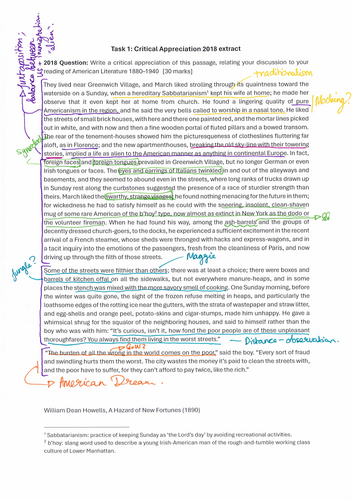 Task 1: Critical Appreciation 2018 extract
2018 Question: Write a critical appreciation of this passage, relating your discussion to your
reading of American Literature 1880-1940 [30 marks]
traditionalism
They lived near Greenwich Village, and March liked strolling through its quaintness toward the
waterside on a Sunday, when a hereditary Sabbatarianism¹ kept his wife at home; he made her
observe that it even kept her at home from church. He found a lingering quality of pure
Americanism in the region, and he said the very bells called to worship in a nasal tone. He liked
Mocking?
the streets of small brick houses, with here and there one painted red, and the mortar lines picked
out in white, and with now and then a fine wooden portal of fluted pillars and a bowed transom.
The rear of the tenement-houses showed him the picturesqueness of clotheslines fluttering far
aloft, as in Florence; and the new apartment-houses, breaking the old sky-line with their towering
stories, implied a life as alien to the American manner as anything in continental Europe. In fact,
foreign faces and foreign tongues prevailed in Greenwich Village, but no longer German or even
Irish tongues or faces. The eyes and earrings of Italians twinkled in and out of the alleyways and
basements, and they seemed to abound even in the streets, where long ranks of trucks drawn up
in Sunday rest along the curbstones suggested the presence of a race of sturdier strength than
theirs. March liked the swarthy, strange visages; he found nothing menacing for the future in them;
for wickedness he had to satisfy himself as he could with the sneering, insolent, clean-shaven
mug of some rare American of the b'hoy² type, now almost as extinct in New York as the dodo or
the volunteer fireman. When he had found his way, among the ash-barrels and the groups of
decently dressed church-goers, to the docks, he experienced a sufficient excitement in the recent
arrival of a French steamer, whose sheds were thronged with hacks and express-wagons, and in
a tacit inquiry into the emotions of the passengers, fresh from the cleanliness of Paris, and now
driving up through the filth of those streets.
Jungle?
Maggie
Some of the streets were filthier than others; there was at least a choice; there were boxes and
barrels of kitchen offal on all the sidewalks, but not everywhere manure-heaps, and in some
places the stench was mixed with the more savory smell of cooking. One Sunday morning, before
the winter was quite gone, the sight of the frozen refuse melting in heaps, and particularly the
loathsome edges of the rotting ice near the gutters, with the strata of waste-paper and straw litter,
and egg-shells and orange peel, potato-skins and cigar-stumps, made him unhappy. He gave a
whimsical shrug for the squalor of the neighboring houses, and said to himself rather than the
boy who was with him: "It's curious, isn't it, how fond the poor people are of these unpleasant
thoroughfares? You always find them living in the worst streets."
Distance - observation.
"The burden of all the wrong in the world comes on the poor," said the boy. "Every sort of fraud
and swindling hurts them the worst. The city wastes the money it's paid to clean the streets with,
and the poor have to suffer, for they can't afford to pay twice, like the rich."
American Dream.
William Dean Howells, A Hazard of New Fortunes (1890)
¹ Sabbatarianism: practice of keeping Sunday as 'the Lord's day' by avoiding recreational activities.
² B'hoy: slang word used to describe a young Irish-American man of the rough-and-tumble working class
culture of Lower Manhattan.